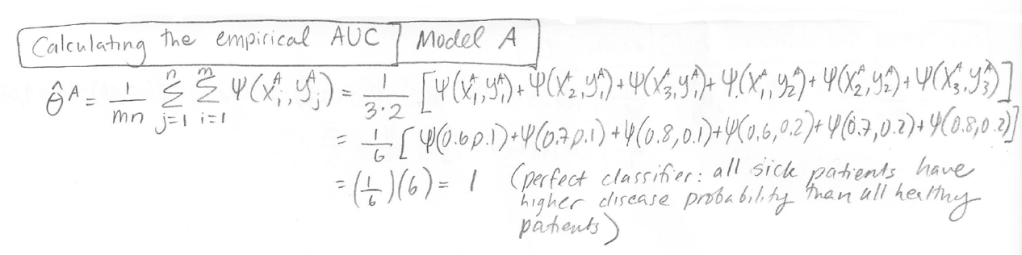 Calculating the empirical AUC | Model A
θ̂ᴬ = 1/mn Σⁿⱼ₌₁ Σᵐᵢ₌₁ Ψ(Xᴬᵢ, yᴬⱼ) = 1/3·2 [Ψ(Xᴬ₁, yᴬ₁) + Ψ(Xᴬ₂, yᴬ₁) + Ψ(Xᴬ₃, yᴬ₁) + Ψ(Xᴬ₁, yᴬ₂) + Ψ(Xᴬ₂, yᴬ₂) + Ψ(Xᴬ₃, yᴬ₃)]
= 1/6 [Ψ(0.6,0.1) + Ψ(0.7,0.1) + Ψ(0.8,0.1) + Ψ(0.6,0.2) + Ψ(0.7,0.2) + Ψ(0.8,0.2)]
= (1/6)(6) = 1 (perfect classifier: all sick patients have
higher disease probability than all healthy
patients)